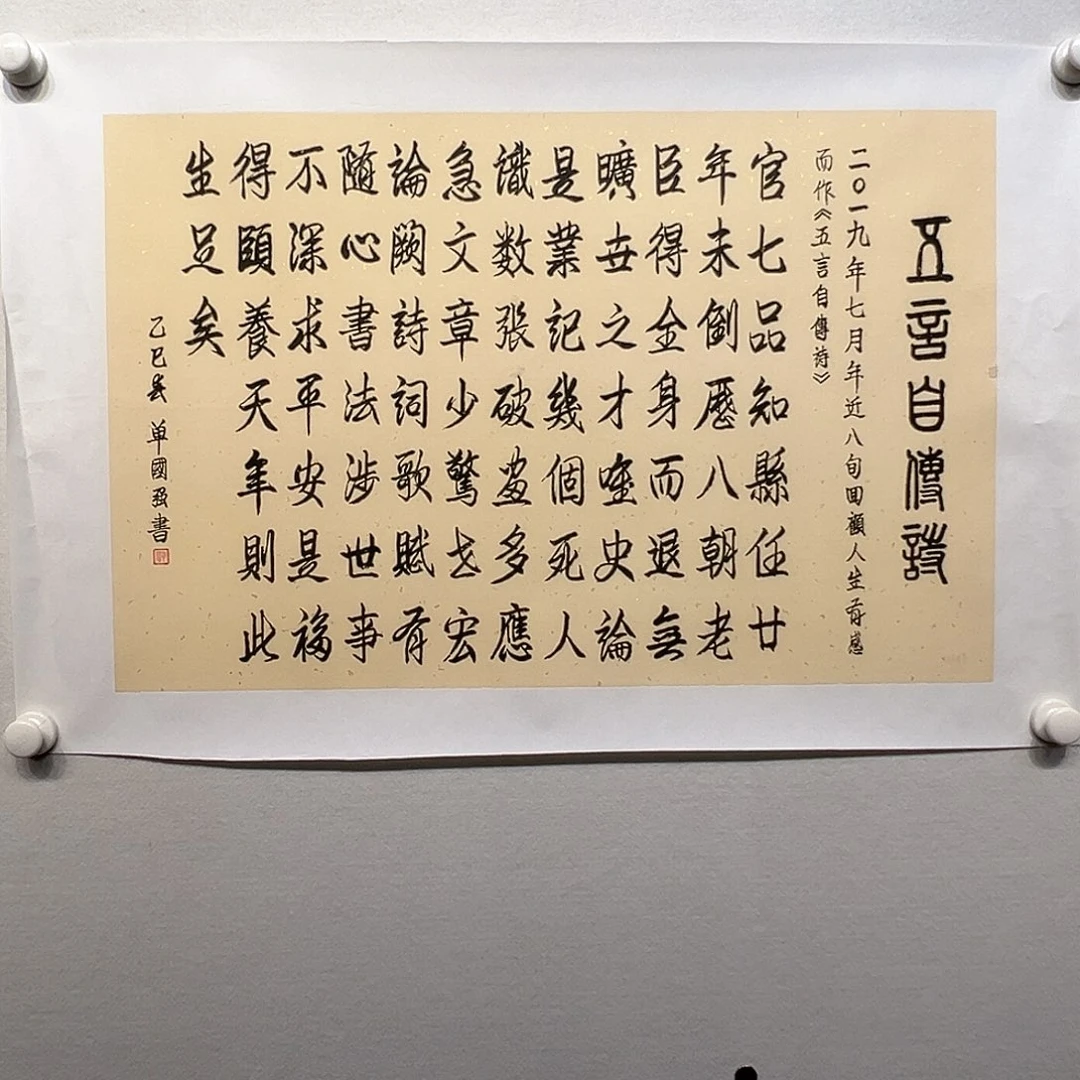 五言自傳詩
二〇一九年七月年近八旬回顧人生有感
而作《五言自傳詩》
官七品知縣任廿
年未倒歷八朝老
臣得全身而退無
曠世之才唯史論
是業記幾個死人
識数張破畫多應
急文章少驚世宏
論闕詩詞歌賦有
隨心書法涉世事
不深求平安是福
得頤養天年則此
生足矣
乙巳春 单國强書